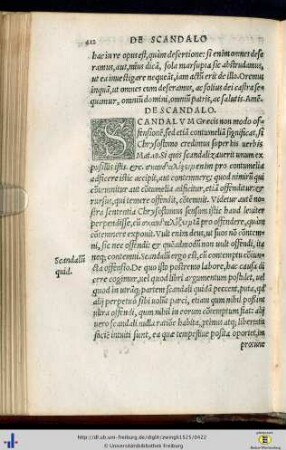 412 DE SCANDALO
hac in re opus est, quàm desertione: si enim omnes dese
ramus, aut, mius dicã, sola marsupia sic abstrudamus,
ut ea inuestigare nequeãt, iam actũ erit de illo. Oremus
inquã, ut omniũ eum deseramus, ac solius dei castra se-
quamur, omniũ domini, omniũ patris, ac salutis. Amẽ.
DE SCANDALO.
SCANDALVM Græcis non modo of
fensionẽ, sed etiã contumeliã significat, si
Chrysostomo credimus super his uerbis
Mat. 18. Si quis scandalizauerit unum ex
pusillis istis. &c.
adijcere istic accipit, aut contemnere: quod nimirũ qui
contemnitur aut cõtumelia adficitur, etiã offenditur: &
rursus, qui temere offendit, cõtemnit. Videtur aut no
stra sententia Chrysostomus sensum istic haud leuiter
perpendisse, cũ pro offendere, quàm
cõtemnere exponit. Vult enim deus, ut suos nõ contem-
ni, sic nec offendi: & quẽadmodũ non uult offendi, ita
neq; contemni. Scandalũ ergo est, cũ contemptu cõiun
cta offensio. De quo isto postremo labore, hac causa di
cere cogimur, uel quod libri argumentum postulet, uel
quod in utrãq; partem scandali quidã peccent, puta, qd
alij perpetuo sibi uolũt parci, etiam quum nihil possint
iura offendi, quum nihil in eorum cõtemptum fiat: alij
uero scandali nulla ratiõe habita, primo atq; liberius
suscitare inuiti sunt, ea quæ tempestiue posita oportet, in
Scandalũ
quid.
http://dl.ub.uni-freiburg.de/diglit/zwingli1525/0422
© Universitätsbibliothek Freiburg